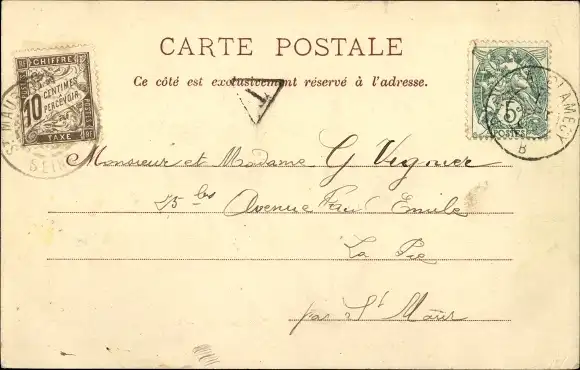 CARTE POSTALE
Ce côté est exclusivement réservé à l'adresse.
CHIFFRE
10 CENTIMES
À PERCEVOIR
TAXE
T
5
POSTES
CLAMECY
B
ST MAUR
SEINE
Monsieur et Madame G Vignier
25 bis Avenue Paul Emile
La Pie
par St Maur